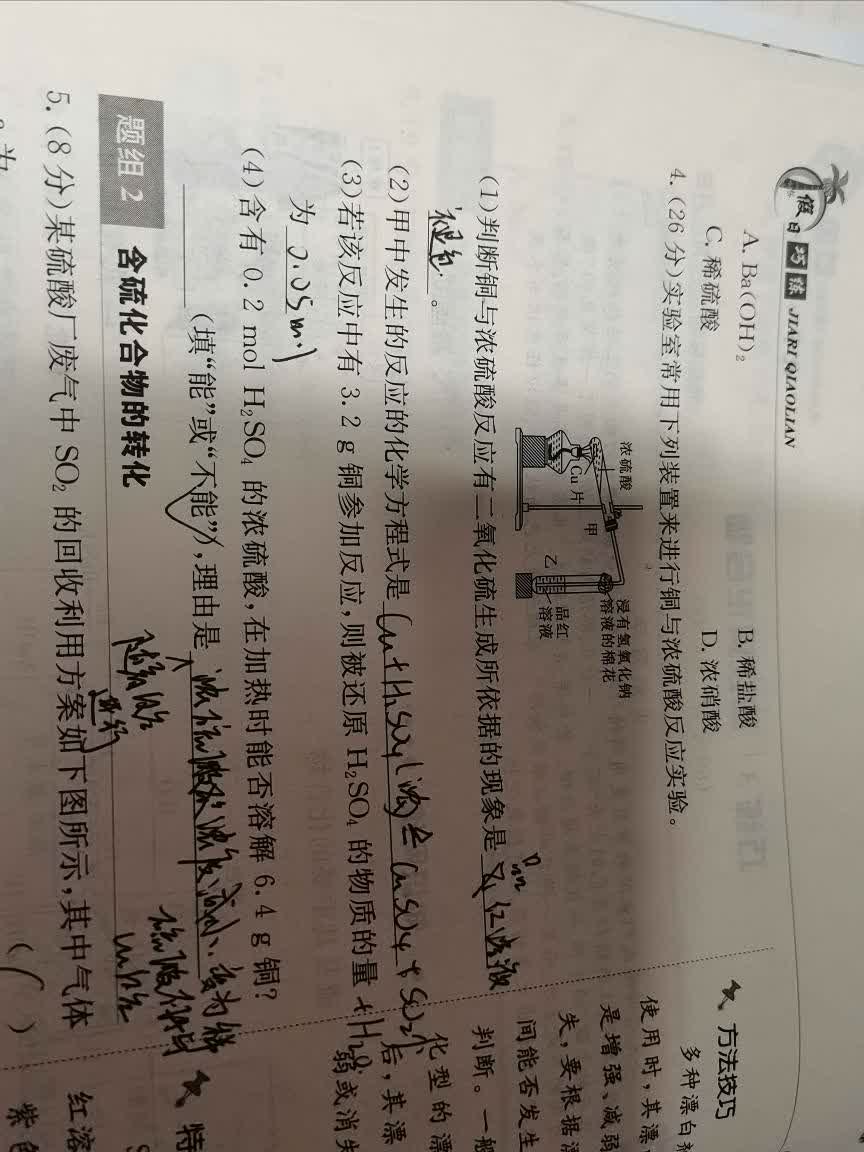 假日巧练 JIARI QIAOLIAN
A. Ba(OH)₂ B. 稀盐酸
C. 稀硫酸 D. 浓硝酸
4. (26 分)实验室常用下列装置来进行铜与浓硫酸反应实验。
浓硫酸
Cu 片
甲
乙
浸有氢氧化钠
溶液的棉花
品红
溶液
(1)判断铜与浓硫酸反应有二氧化硫生成所依据的现象是 红溶液
褪色。
(2)甲中发生的反应的化学方程式是 Cu+H₂SO₄(浓)≜CuSO₄+SO₂↑+H₂O
(3)若该反应中有 3.2 g 铜参加反应,则被还原 H₂SO₄ 的物质的量
为 0.05mol
(4)含有 0.2 mol H₂SO₄ 的浓硫酸,在加热时能否溶解 6.4 g 铜?
(填“能”或“不能”),理由是 浓硫酸 浓度减小、变为稀
随着反应
进行
硫酸不再与
Cu反应
题组 2 含硫化合物的转化
5. (8 分)某硫酸厂废气中 SO₂ 的回收利用方案如下图所示,其中气体
( )
方法技巧
多种漂白剂
使用时,其漂
是增强、减弱
失,要根据漂
间能否发生
判断。一般
化型的漂
后,其漂
弱或消失
特
红溶
紫色